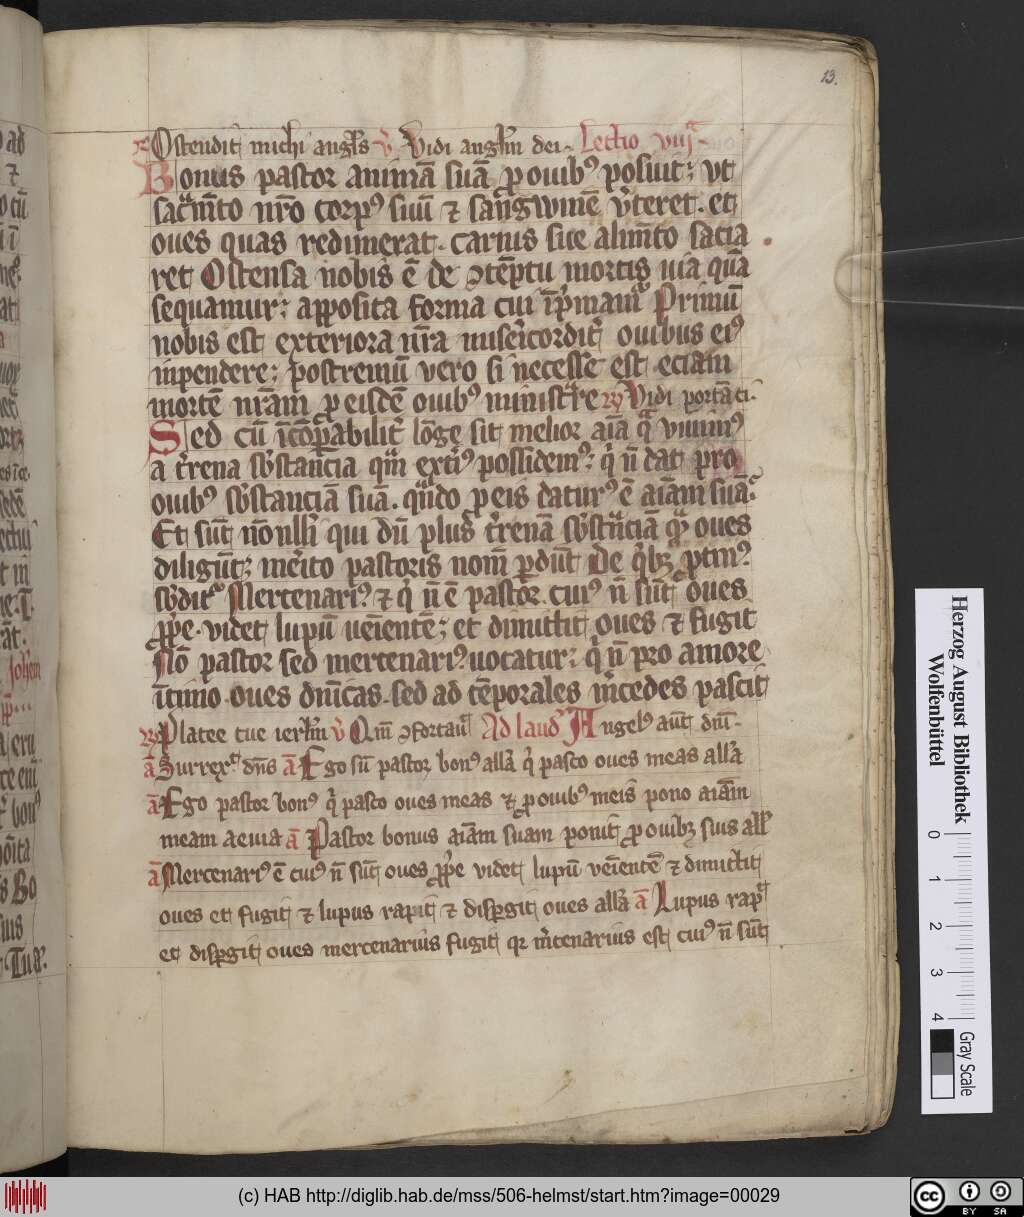 13.
Ostendit michi angl̄s v̄ Vidi angl̄m dei Lectio viijᵃ
Bonus pastor animā suā ꝓ ouibꝰ posuit; vt
sacͣm̄to nr̄o corpꝰ suū ⁊ sangwinē v̓teret. et
oues quas redimerat. carnis sue alim̄to sacia
ret Ostensa nobis ē de ꝯtēptu mortis uia quā
sequamur; apposita forma cui īp̓mamͬ Primū
nobis est exteriora nr̄a miser̓cordit̓ ouibus eiꝰ
inpendere; postremū vero si necesse est eciam
mortē nr̄am ꝓ eisdē ouibꝰ ministͬre ꝶ Vidi portā ci
Sed cū īcōꝑabilit̓ lōge sit melior aīa qͣ viuimꝰ
a t̓rena sb̓stancia qͣm ext̓iꝰ possidemꝰ; qͥ n̄ dat pro
ouibꝰ sb̓stanciā suā. qn̄do ꝓ eis daturꝰ ē aīam suā.
Et sūt nōnlli qui dū plus t̓renā sb̓stanciā qͣꝫ oues
diligūt; mer̓ito pastoris nom̄ ꝑdūt De qͥbꝫ ꝓtinꝰ
sb̓ditͬ Mercenariꝰ ⁊ qͥ n̄ ē pastor. cuiꝰ n̄ sūt oues
ꝓpe. videt lupū ueīentē; et dimittit oues ⁊ fugit
Nō pastor sed mercenariꝰ uocatur; qͥ n̄ pro amore
ītimo oues dn̄icas. sed ad tēporales m̓cedes pascit
ꝶ Platee tue ierl̄m v̄ Qm̄ ꝯfortauͭ Ad laud̓ Angelꝰ aut̄ dn̄i
ā Surrexͭ dn̄s ā Ego sū pastor bonꝰ all̓a qͥ pasco oues meas all̓a
ā Ego pastor bonꝰ qͥ pasco oues meas ⁊ ꝓ ouibꝰ meis pono aīam
meam aeuia ā Pastor bonus aīam suam ponit ꝓ ouibꝫ suis all̓
ā Mercenariꝰ ē cuiꝰ n̄ sūt oues ꝓpe videt lupū veīentē ⁊ dimittit
oues et fugit ⁊ lupus rapit ⁊ disꝑgit oues all̓a ā Lupus rapͭ
et disꝑgit oues mercenarius fugit qꝛ m̓cenarius est cuiꝰ n̄ sūt
Herzog August Bibliothek
Wolfenbüttel
0 1 2 3 4
Gray Scale
(c) HAB http://diglib.hab.de/mss/506-helmst/start.htm?image=00029
cc BY SA